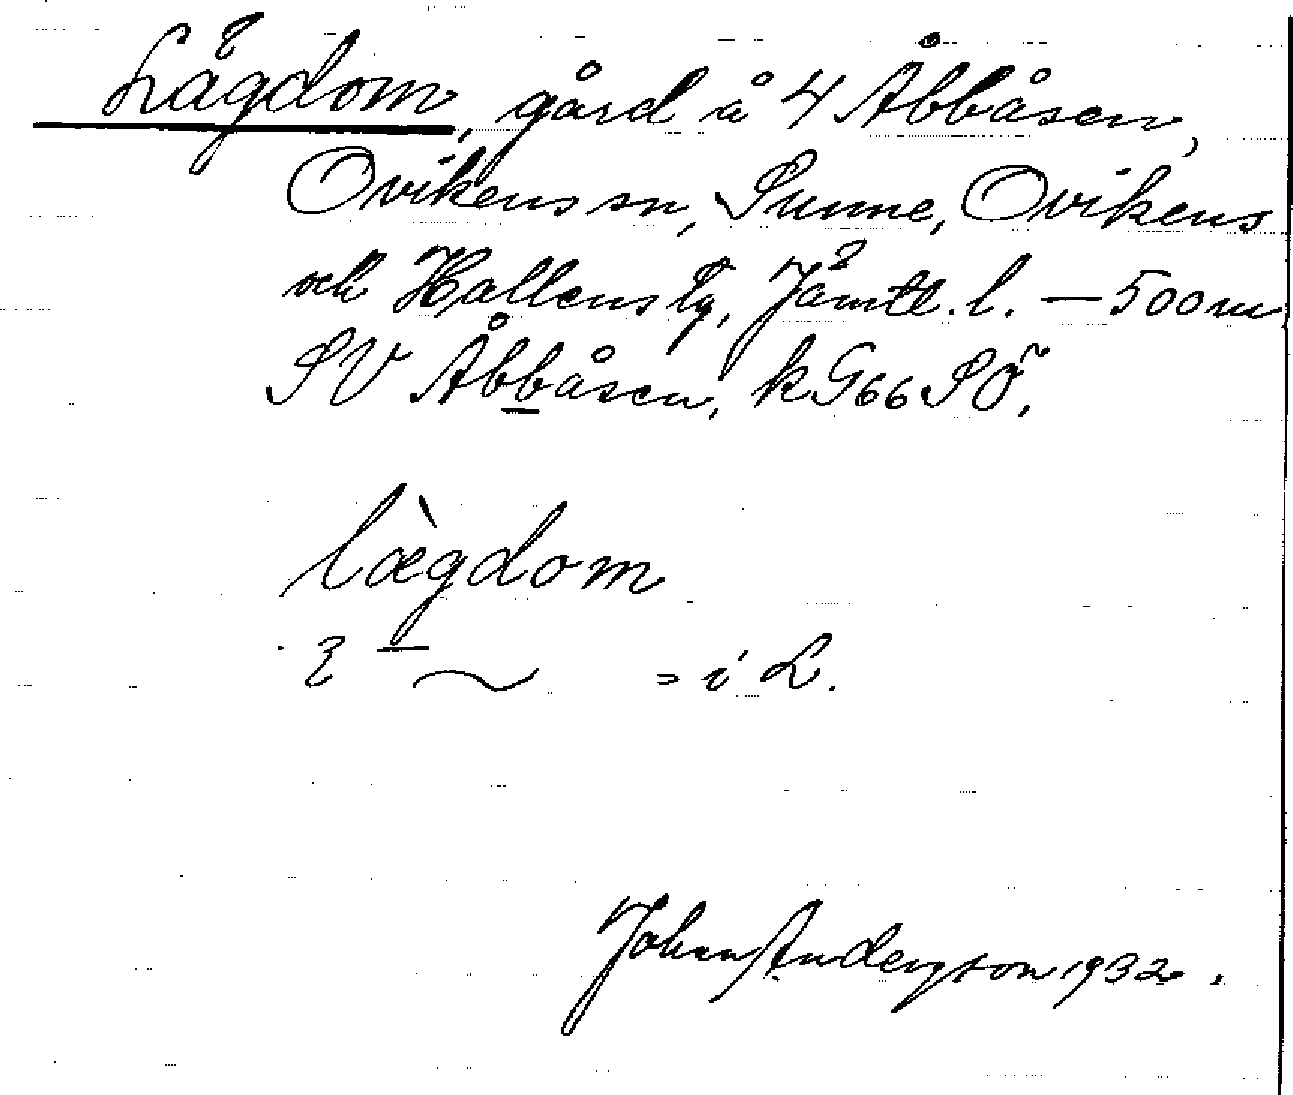 Lägdom, gård å 4 Åbbåsen,
Ovikens sn, Sunne, Ovikens
och Hallens tg, Jämtl. l. — 500 m
SV Åbbåsen, k G66 SÖ.
lægdom
= i L.
Johan Anderzson 1932.